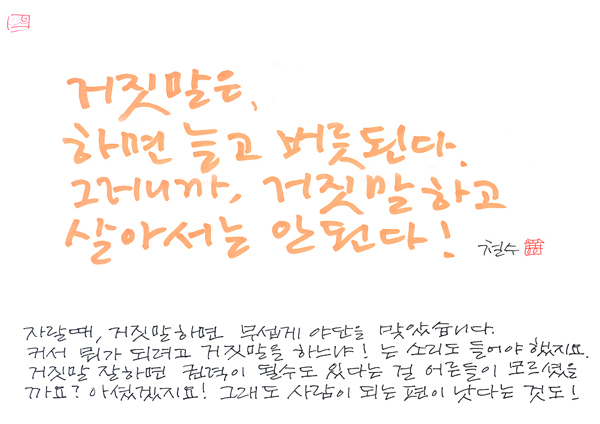 거짓말은,
하면 늘고 버릇된다.
그러니까, 거짓말하고
살아서는 안된다!
철수
자랄때, 거짓말하면 무섭게 야단을 맞았습니다.
커서 뭐가 되려고 거짓말을 하느냐! 는 소리도 들어야 했지요.
거짓말 잘하면 권력이 될수도 있다는 걸 어른들이 모르셨을
까요? 아셨겠지요! 그래도 사람이 되는 편이 낫다는 것도!